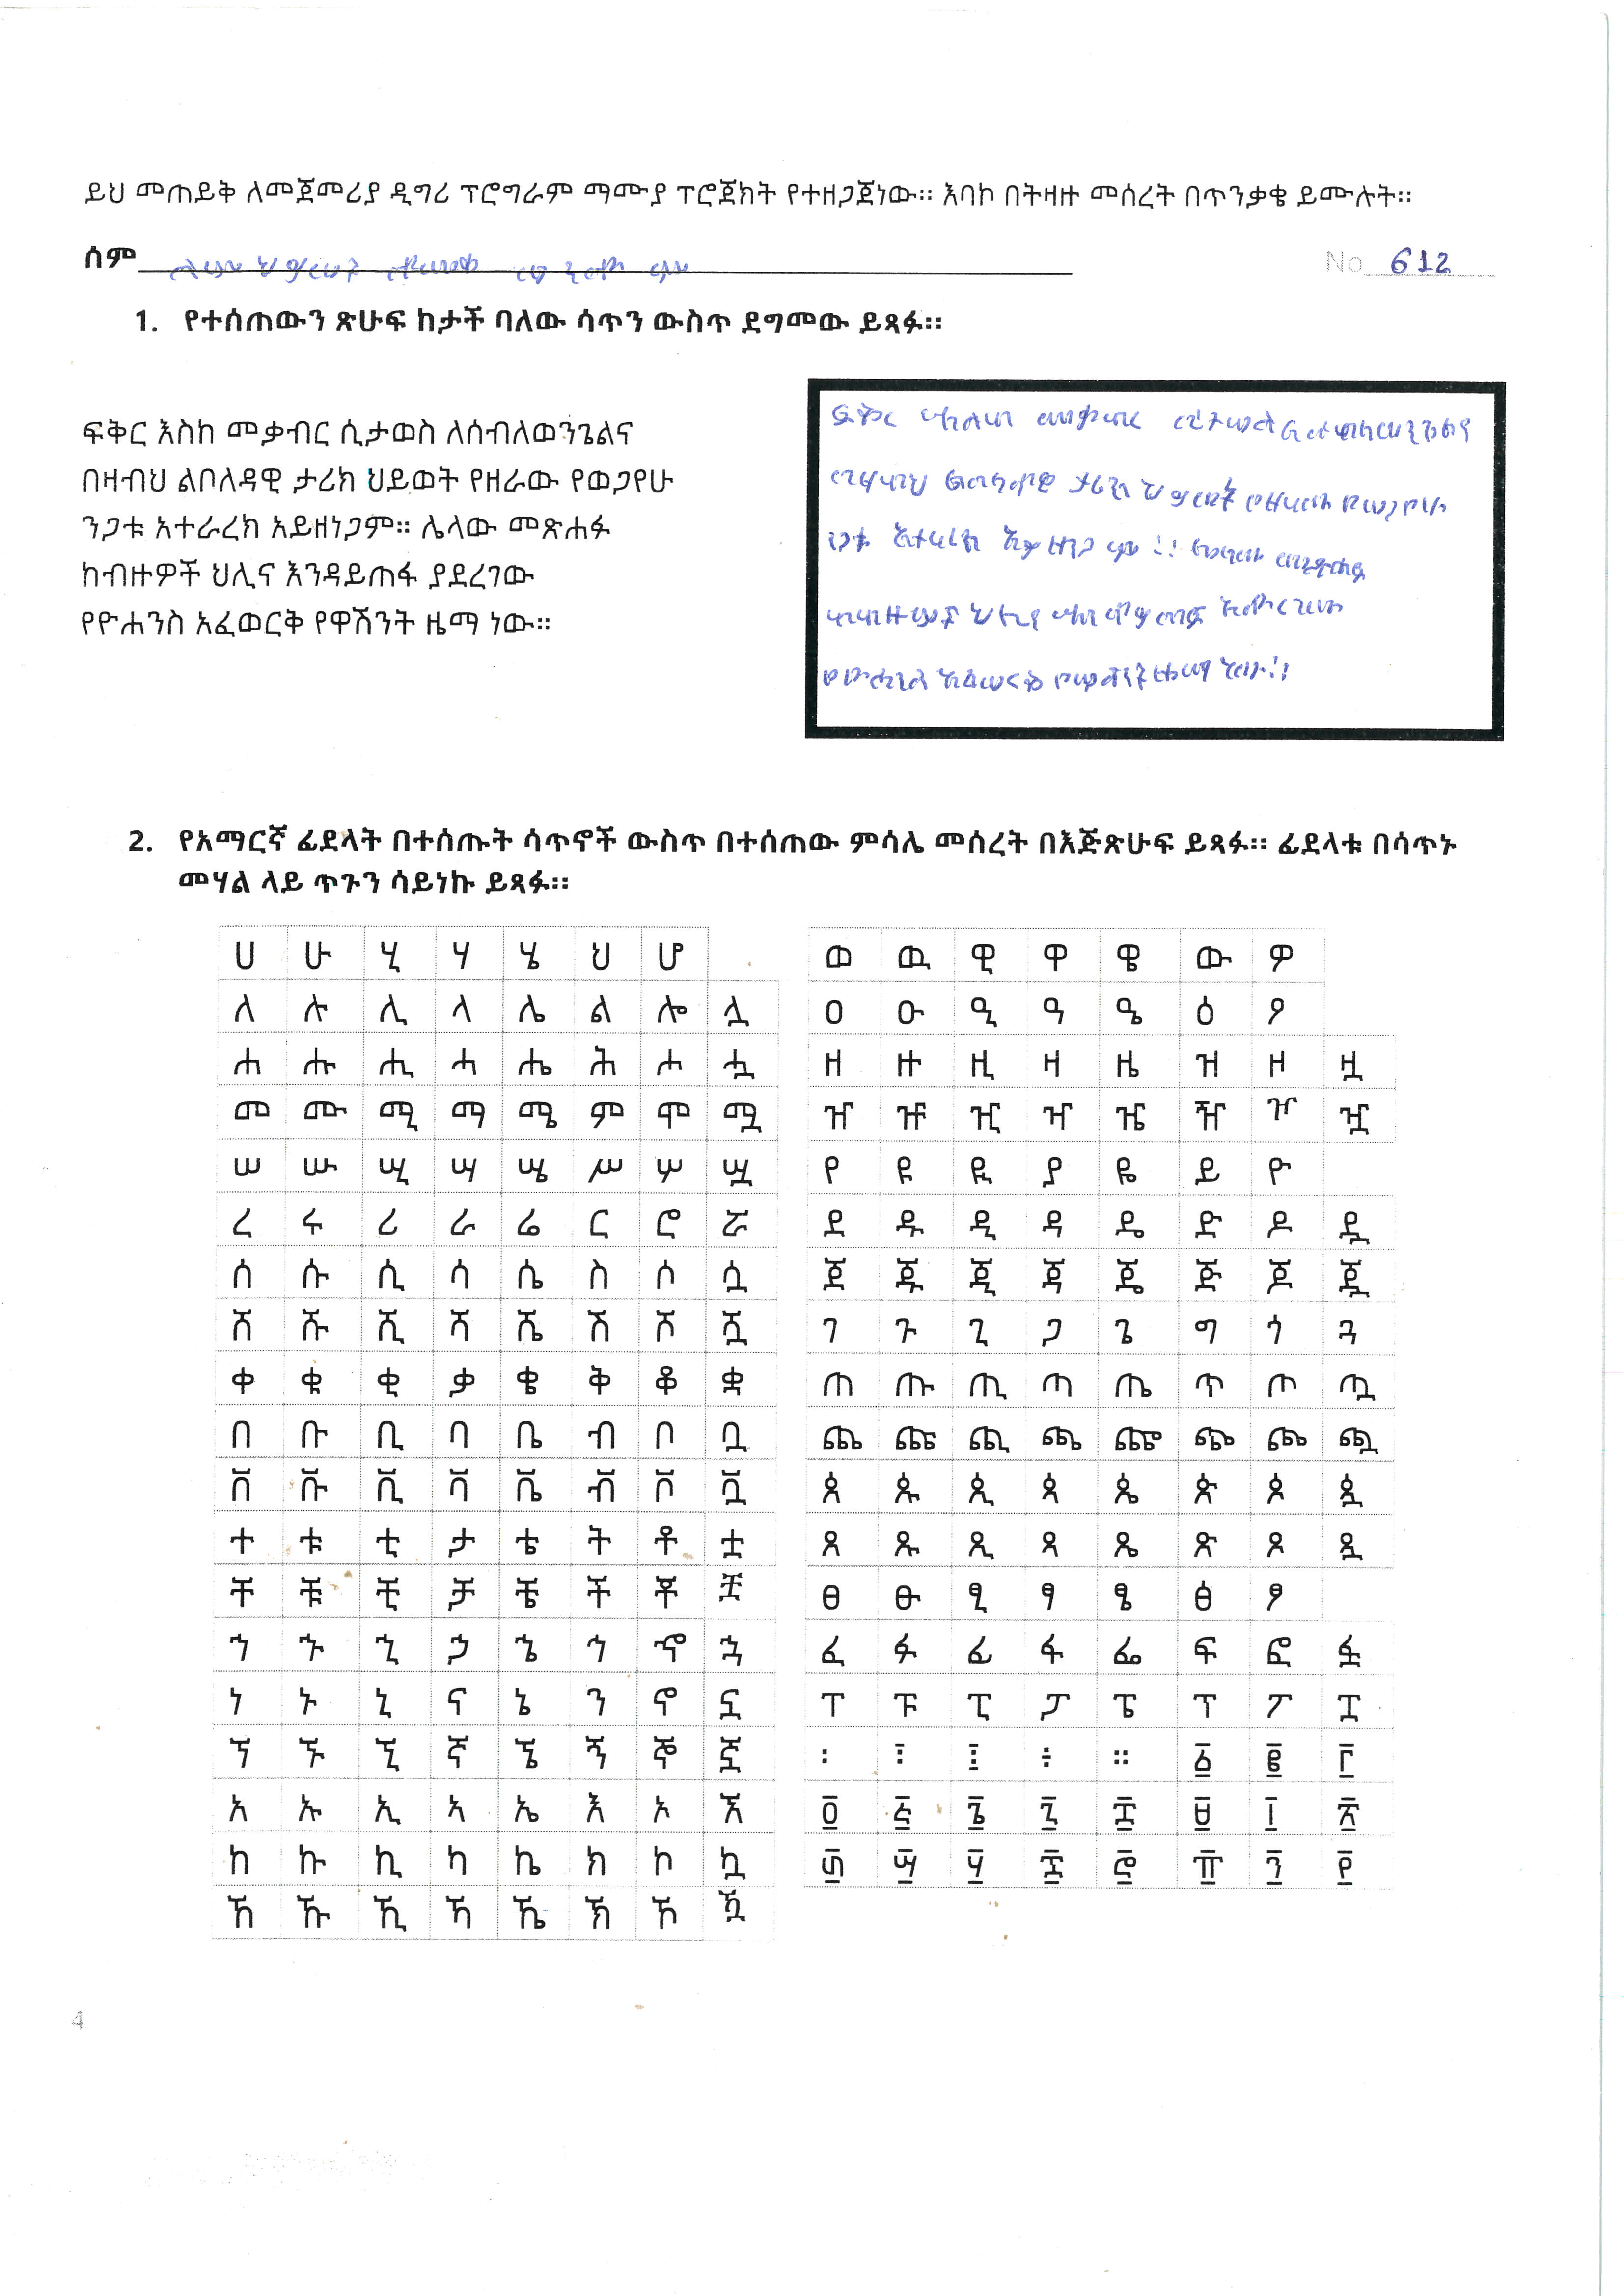 ይህ መጠይቅ ለመጀመሪያ ዲግሪ ፕሮግራም ማሙያ ፕሮጀክት የተዘጋጀነው። እባኮ በትዛዙ መሰረት በጥንቃቄ ይሙሉት።
ስም
No 612
1. የተሰጠውን ጽሁፍ ከታች ባለው ሳጥን ውስጥ ደግመው ይጻፉ።
ፍቅር እስከ መቃብር ሲታወስ ለሰብለወንጌልና
በዛብህ ልቦለዳዊ ታሪክ ህይወት የዘራው የወጋየሁ
ንጋቱ አተራረክ አይዘነጋም። ሌላው መጽሐፉ
ከብዙዎች ህሊና እንዳይጠፋ ያደረገው
የዮሐንስ አፈወርቅ የዋሽንት ዜማ ነው።
ፍቅር እስከ መቃብር ሲታወስ
ታሪክ ህይወት የዘራው የወጋየሁ
ንጋቱ አተራረክ
ከብዙዎች ህሊና
የዮሐንስ አፈወርቅ የዋሽንት ዜማ ነው።
2. የአማርኛ ፊደላት በተሰጡት ሳጥኖች ውስጥ በተሰጠው ምሳሌ መሰረት በእጅጽሁፍ ይጻፉ። ፊደላቱ በሳጥኑ
መሃል ላይ ጥጉን ሳይነኩ ይጻፉ።
ሀ ሁ ሂ ሃ ሄ ህ ሆ
ለ ሉ ሊ ላ ሌ ል ሎ ሏ
ሐ ሑ ሒ ሓ ሔ ሕ ሖ ሗ
መ ሙ ሚ ማ ሜ ም ሞ ሟ
ሠ ሡ ሢ ሣ ሤ ሥ ሦ ሧ
ረ ሩ ሪ ራ ሬ ር ሮ ሯ
ሰ ሱ ሲ ሳ ሴ ስ ሶ ሷ
ሸ ሹ ሺ ሻ ሼ ሽ ሾ ሿ
ቀ ቁ ቂ ቃ ቄ ቅ ቆ ቋ
በ ቡ ቢ ባ ቤ ብ ቦ ቧ
ቨ ቩ ቪ ቫ ቬ ቭ ቮ ቯ
ተ ቱ ቲ ታ ቴ ት ቶ ቷ
ቸ ቹ ቺ ቻ ቼ ች ቾ ቿ
ኀ ኁ ኂ ኃ ኄ ኅ ኆ ኋ
ነ ኑ ኒ ና ኔ ን ኖ ኗ
ኘ ኙ ኚ ኛ ኜ ኝ ኞ ኟ
አ ኡ ኢ ኣ ኤ እ ኦ ኧ
ከ ኩ ኪ ካ ኬ ክ ኮ ኳ
ኸ ኹ ኺ ኻ ኼ ኽ ኾ ዃ
ወ ዉ ዊ ዋ ዌ ው ዎ
ዐ ዑ ዒ ዓ ዔ ዕ ዖ
ዘ ዙ ዚ ዛ ዜ ዝ ዞ ዟ
ዠ ዡ ዢ ዣ ዤ ዥ ዦ ዧ
የ ዩ ዪ ያ ዬ ይ ዮ
ደ ዱ ዲ ዳ ዴ ድ ዶ ዷ
ጀ ጁ ጂ ጃ ጄ ጅ ጆ ጇ
ገ ጉ ጊ ጋ ጌ ግ ጎ ጓ
ጠ ጡ ጢ ጣ ጤ ጥ ጦ ጧ
ጨ ጩ ጪ ጫ ጬ ጭ ጮ ጯ
ጰ ጱ ጲ ጳ ጴ ጵ ጶ ጷ
ጸ ጹ ጺ ጻ ጼ ጽ ጾ ጿ
ፀ ፁ ፂ ፃ ፄ ፅ ፆ
ፈ ፉ ፊ ፋ ፌ ፍ ፎ ፏ
ፐ ፑ ፒ ፓ ፔ ፕ ፖ ፗ
፡ ፤ ። ፩ ፪ ፫
፬ ፭ ፮ ፯ ፰ ፱ ፲ ፳
፴ ፵ ፶ ፷ ፸ ፹ ፺ ፻
4